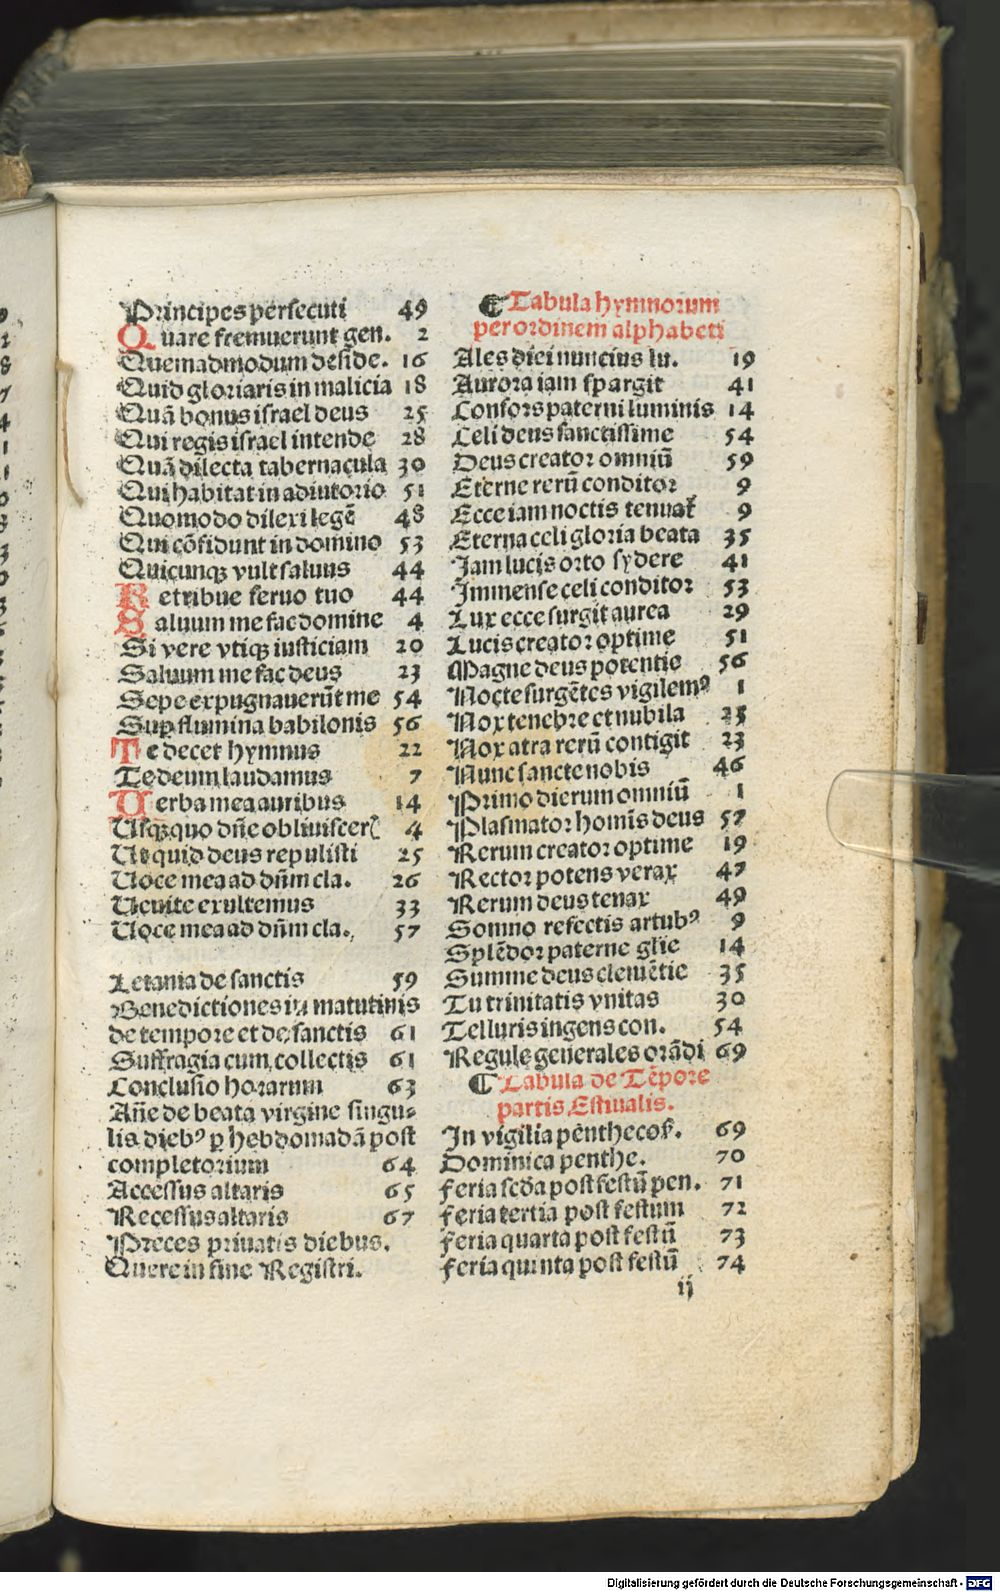 Principes persecuti 49
Quare fremuerunt gen. 2
Quemadmodum deside. 16
Quid gloriaris in malicia 18
Quā bonus israel deus 25
Qui regis israel intende 28
Quā dilecta tabernacula 30
Qui habitat in adiutorio 51
Quomodo dilexi legē 48
Qui cōfidunt in domino 53
Quicunqꝫ vult saluus 44
Retribue seruo tuo 44
Saluum me fac domine 4
Si vere vtiqꝫ iusticiam 20
Saluum me fac deus 23
Sepe expugnauerūt me 54
Suꝑ flumina babilonis 56
Te decet hymnus 22
Te deum laudamus 7
Verba mea auribus 14
Vsqꝫquo dn̄e obliuiscerꝭ 4
Vt quid deus repulisti 25
Voce mea ad dn̄m cla. 26
Venite exultemus 33
Voce mea ad dn̄m cla. 57
Letania de sanctis 59
Benedictiones in matutinis
de tempore et de sanctis 61
Suffragia cum collectis 61
Conclusio horarum 63
Ane de beata virgine singu-
lis diebꝰ ꝑ hebdomadā post
completorium 64
Accessus altaris 65
Recessus altaris 67
Preces priuatis diebus.
Quere in fine Registri.
¶ Tabula hymnorum
per ordinem alphabeti
Ales diei nuncius lu. 19
Aurora iam spargit 41
Consors paterni luminis 14
Celi deus sanctissime 54
Deus creator omniū 59
Eterne rerū conditor 9
Ecce iam noctis tenuat᷑ 9
Eterna celi gloria beata 35
Jam lucis orto sydere 41
Immense celi conditor 53
Lux ecce surgit aurea 29
Lucis creator optime 51
Magne deus potentie 56
Nocte surgētes vigilemꝰ 1
Nox tenebre et nubila 25
Nox atra rerū contigit 23
Nunc sancte nobis 46
Primo dierum omniū 1
Plasmator homis deus 57
Rerum creator optime 19
Rector potens verax 47
Rerum deus tenax 49
Somno refectis artubꝰ 9
Splēdor paterne glie 14
Summe deus clemētie 35
Tu trinitatis vnitas 30
Telluris ingens con. 54
Regule generales orādi 69
¶ Tabula de Tēpore
partis Estiualis.
In vigilia pēthecos. 69
Dominica penthe. 70
feria scd̄a post festū pen. 71
feria tertia post festum 72
feria quarta post festū 73
feria quinta post festū 74
ij
Digitalisierung gefördert durch die Deutsche Forschungsgemeinschaft - DFG